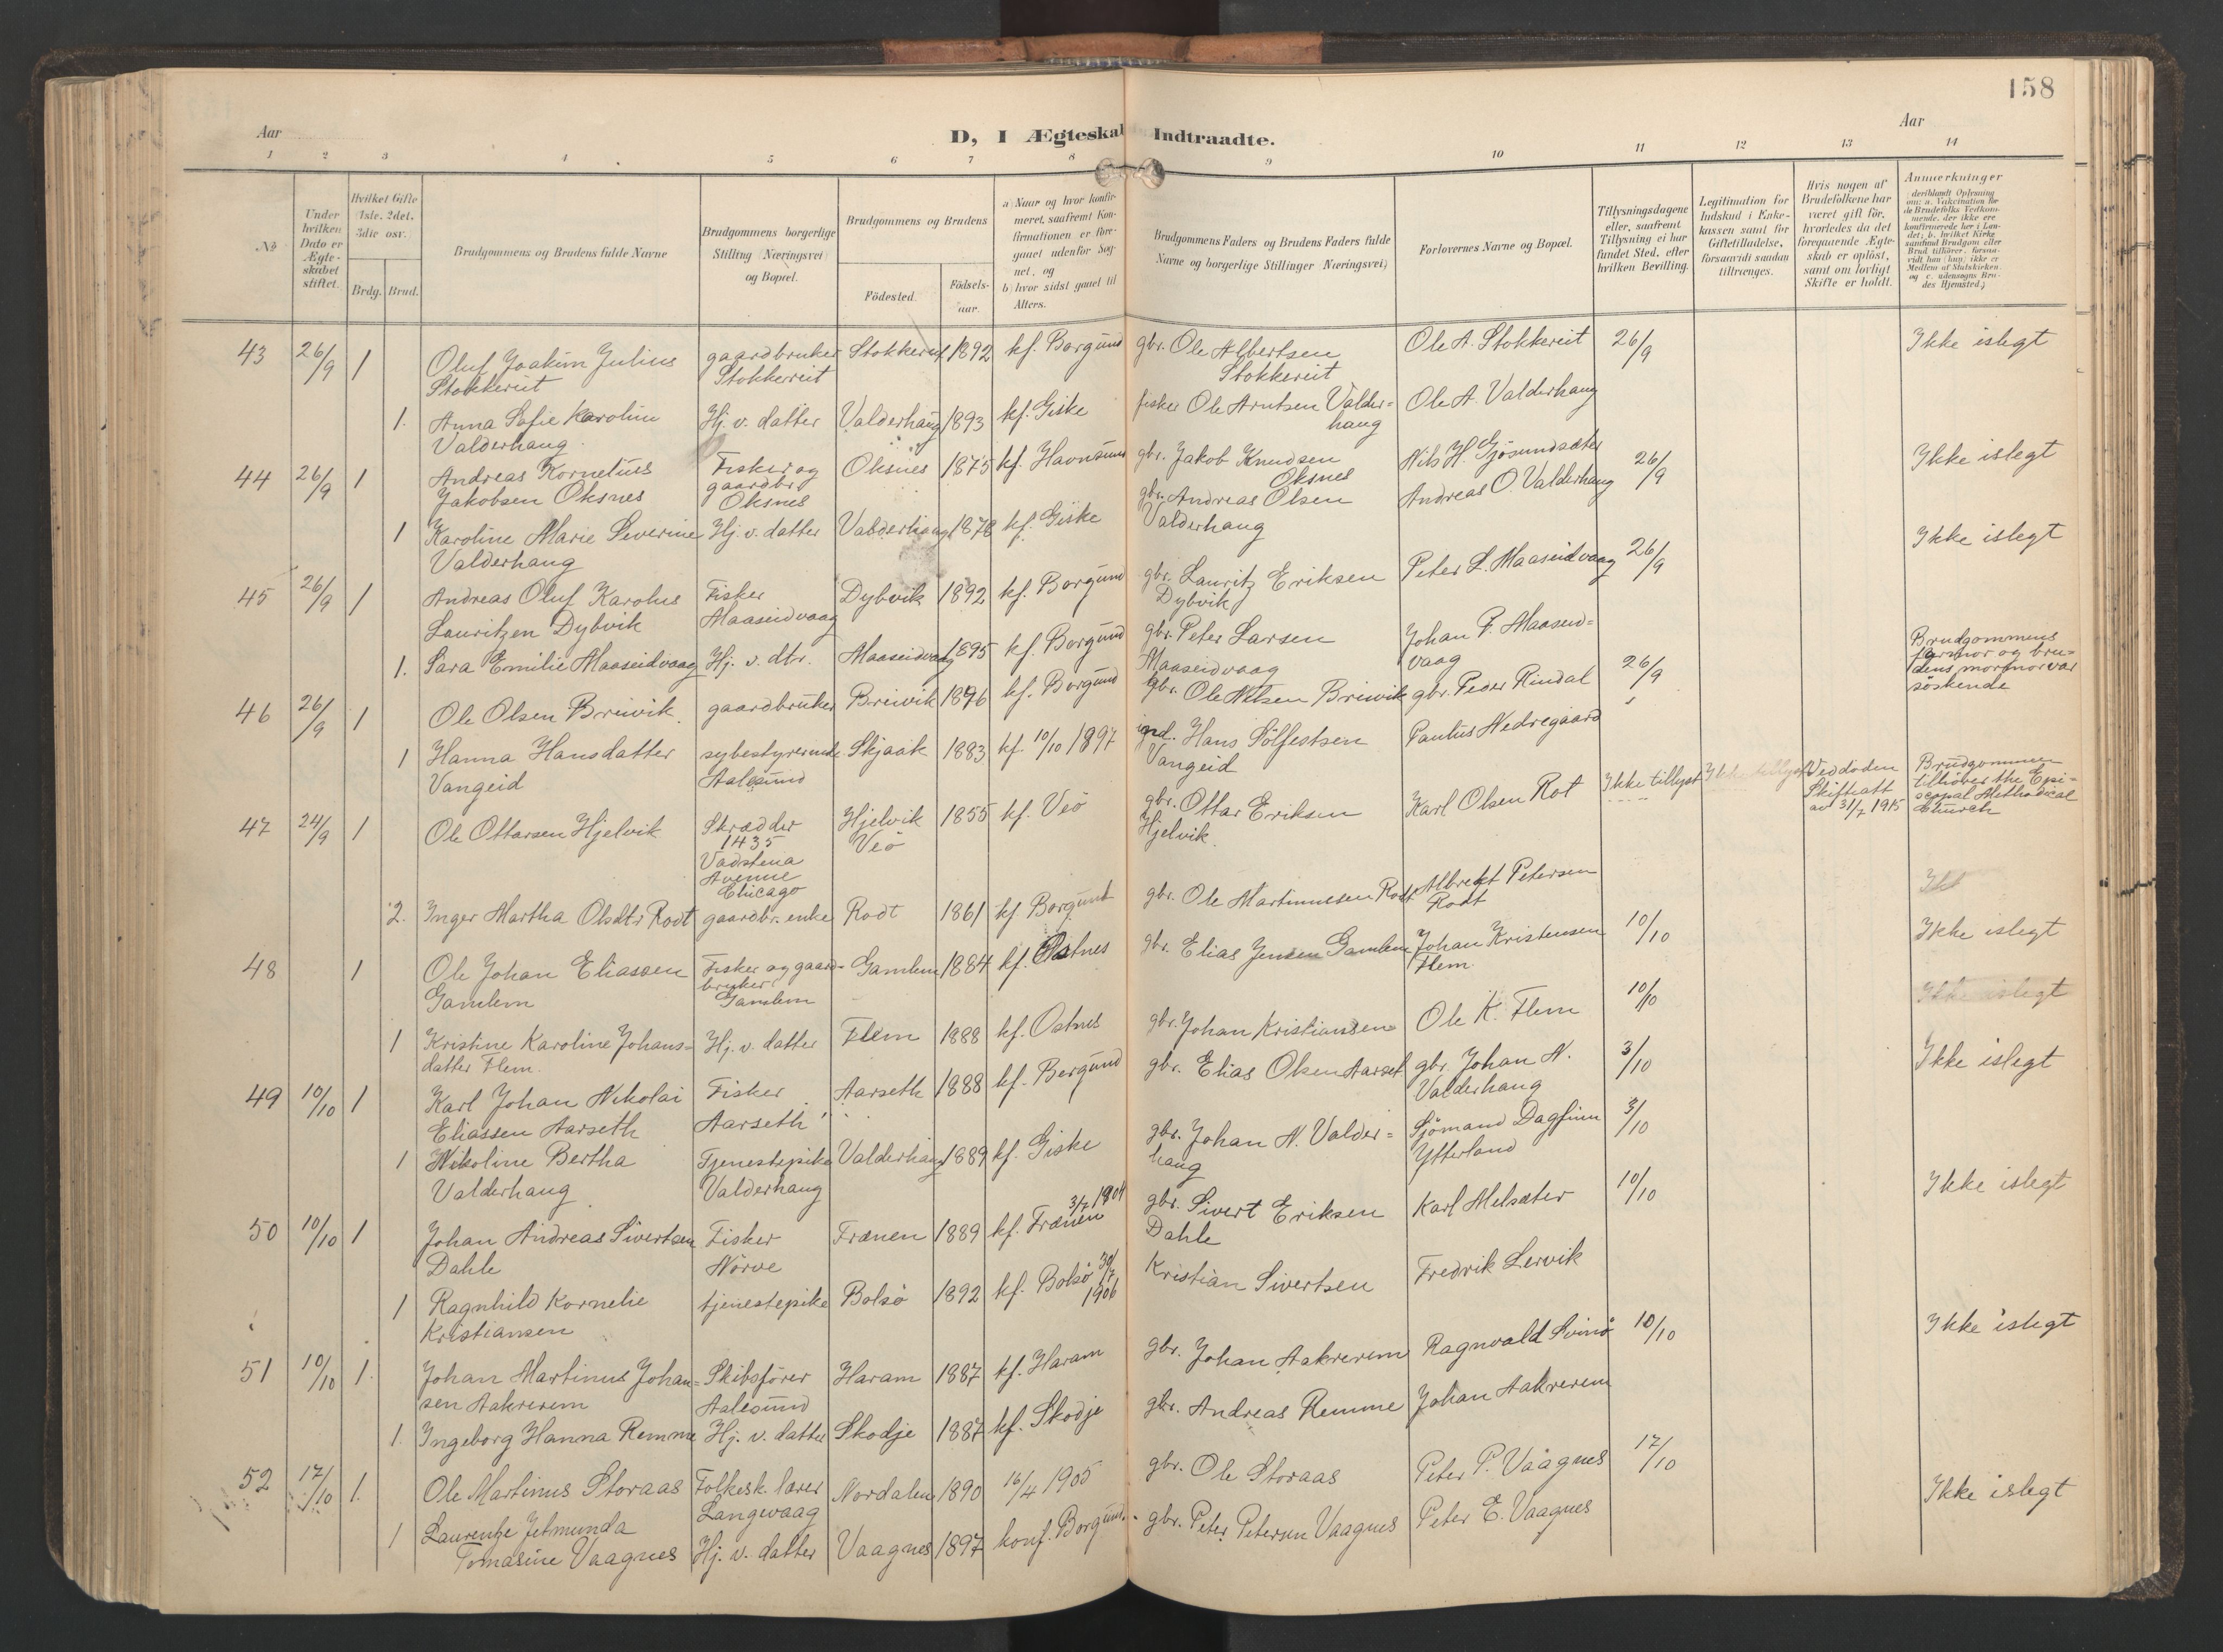 158
Aar
D, I Ægteskab Indtraadte.
Aar
1 2 3 4 5 6 7 8 9 10 11 12 13 14
No
Under hvilken Dato er Ægteskabet stiftet.
Hvilket Gifte 1ste, 2det, 3die osv.
Brdg. Brud.
Brudgommens og Brudens fulde Navne
Brudgommens borgerlige Stilling (Næringsvei) og Bopæl.
Brudgommens og Brudens
Födested.
Födselsaar.
a) Naar og hvor konfirmeret, saafremt Konfirmationen er foregaaet udenfor Sognet, og
b) hvor sidst gaaet til Alters.
Brudgommens Faders og Brudens Faders fulde Navne og borgerlige Stillinger (Næringsvei)
Forlovernes Navne og Bopæl.
Tillysningsdagene eller, saafremt Tillysning ei har fundet Sted, efter hvilken Bevilling.
Legitimation for Indskud i Enkekassen samt for Giftetilladelse, forsaavidt saadan tiltrænges.
Hvis nogen af Brudefolkene har været gift för, hvorledes da det foregaaende Ægteskab er oplöst, samt om lovligt Skifte er holdt.
Anmerkninger
43 26/9 1 Oluf Joakim Julius gaardbruker Stokkereit 1892 kf. Borgund gbr. Ole Albertsen Ole A. Stokkereit 26/9 Ikke islegt
Stokkereit Stokkereit Stokkereit
1. Anna Sofie Karolin Hj. v. datter Valderhaug 1893 kf. Giske fisker Ole Arntsen Valder= Ole A. Valderhaug
Valderhaug haug
44 26/9 1 Andreas Kornelius Fisker og Oksnes 1875 kf. Havnsund gbr. Jakob Knudsen Nils H. Gjösundsæter 26/9 Ikke islegt
Jakobsen Oksnes gaardbr. Oksnes Oksnes
1 Karoline Marie Severine Hj. v. datter Valderhaug 1878 kf. Giske gbr. Andreas Olsen Andreas O. Valderhaug
Valderhaug Valderhaug
45 26/9 1 Andreas Oluf Karolus Fisker Dybvik 1892 kf. Borgund gbr. Lauritz Eriksen Peter L. Maaseidvaag 26/9 Ikke islegt
Lauritzen Dybvik Maaseidvaag Dybvik
1. Sara Emilie Maaseidvaag Hj. v. dtr. Maaseidvaag 1895 kf. Borgund gbr. Peter Larsen Johan P. Maaseid=
Maaseidvaag vaag
46 26/9 1 Ole Olsen Breivik gaardbruker Breivik 1896 kf. Borgund gbr. Ole Nilsen Breivik gbr. Peder Rindal 26/9 Brudgommens
farmor og bru=
dens mormor var
söskende
1 Hanna Hansdatter sybestyrerinde Skjaak 1883 kf. 10/10 1897 Hans Sölfestsen Paulus Nedregaard
Vangeid Aalesund Vangeid
47 24/9 1 Ole Ottarsen Hjelvik Skrædder Hjelvik 1855 kf. Veö gbr. Ottar Eriksen Karl Olsen Rot Ikke tillyst Ikke tillyst Ved döden Brudgommen
1435 Veö Hjelvik Skifteatt tilhörer the Epi=
Vadstena av 31/7 1915 scopal Methodical
Avenue Church
Chicago
2. Inger Martha Olsdtr Rodt gaardbr. enke Rodt 1861 kf Borgund gbr. Ole Martinussen Rodt Albrekt Petersen
Rodt
48 1 Ole Johan Eliassen Fisker og gaard= Gamlem 1884 kf. Vatnes gbr. Elias Jensen Gamlem Johan Kristensen 10/10 Ikke islegt
Gamlem bruker Gamlem Flem
1 Kristine Karoline Johans= Hj. v. datter Flem 1888 kf. Vatnes gbr. Johan Kristiansen Ole K. Flem 10/10 Ikke islegt
datter Flem.
49 10/10 1 Karl Johan Nikolai Fisker Aarseth 1888 kf. Borgund gbr. Elias Olsen Aarset gbr. Johan N. 3/10 Ikke islegt
Eliassen Aarseth Aarseth Valderhaug
1 Nikoline Bertha Tjenestepike Valderhaug 1889 kf. Giske gbr. Johan N. Valder= Sjömand Dagfinn 3/10
Valderhaug Valderhaug haug Ytterland
50 10/10 1 Johan Andreas Sivertsen Fisker Frænen 1889 kf. Frænen 3/7 1904 gbr. Sivert Eriksen Karl Melsæter 10/10 Ikke islegt
Dahle Nörve Dahle
1 Ragnhild Kornelie tjenestepike Bolsö 1892 kf. Bolsö 30/7 1906 Kristian Sivertsen Fredrik Lervik
Kristiansen
51 10/10 1. Johan Martinus Johan= Skibsförer Haram 1887 kf. Haram gbr. Johan Aakrerem Ragnvald Svinö 10/10 Ikke islegt
sen Aakrerem Aalesund
1. Ingeborg Hanna Remme Hj. v. datter Skodje 1887 kf. Skodje gbr. Andreas Remme Johan Aakrerem
52 17/10 1. Ole Martinus Storaas Folkesk. lærer Nordalen 1890 16/4 1905 gbr. Ole Storaas Peter P. Vaagnes 17/10 Ikke islegt
Langevaag
1 Laurentze Jetmunda
Tomasine Vaagnes Hj. v. datter Vaagnes 1897 konf. Borgund. gbr. Peter Petersen Vaagnes Peter E. Vaagnes